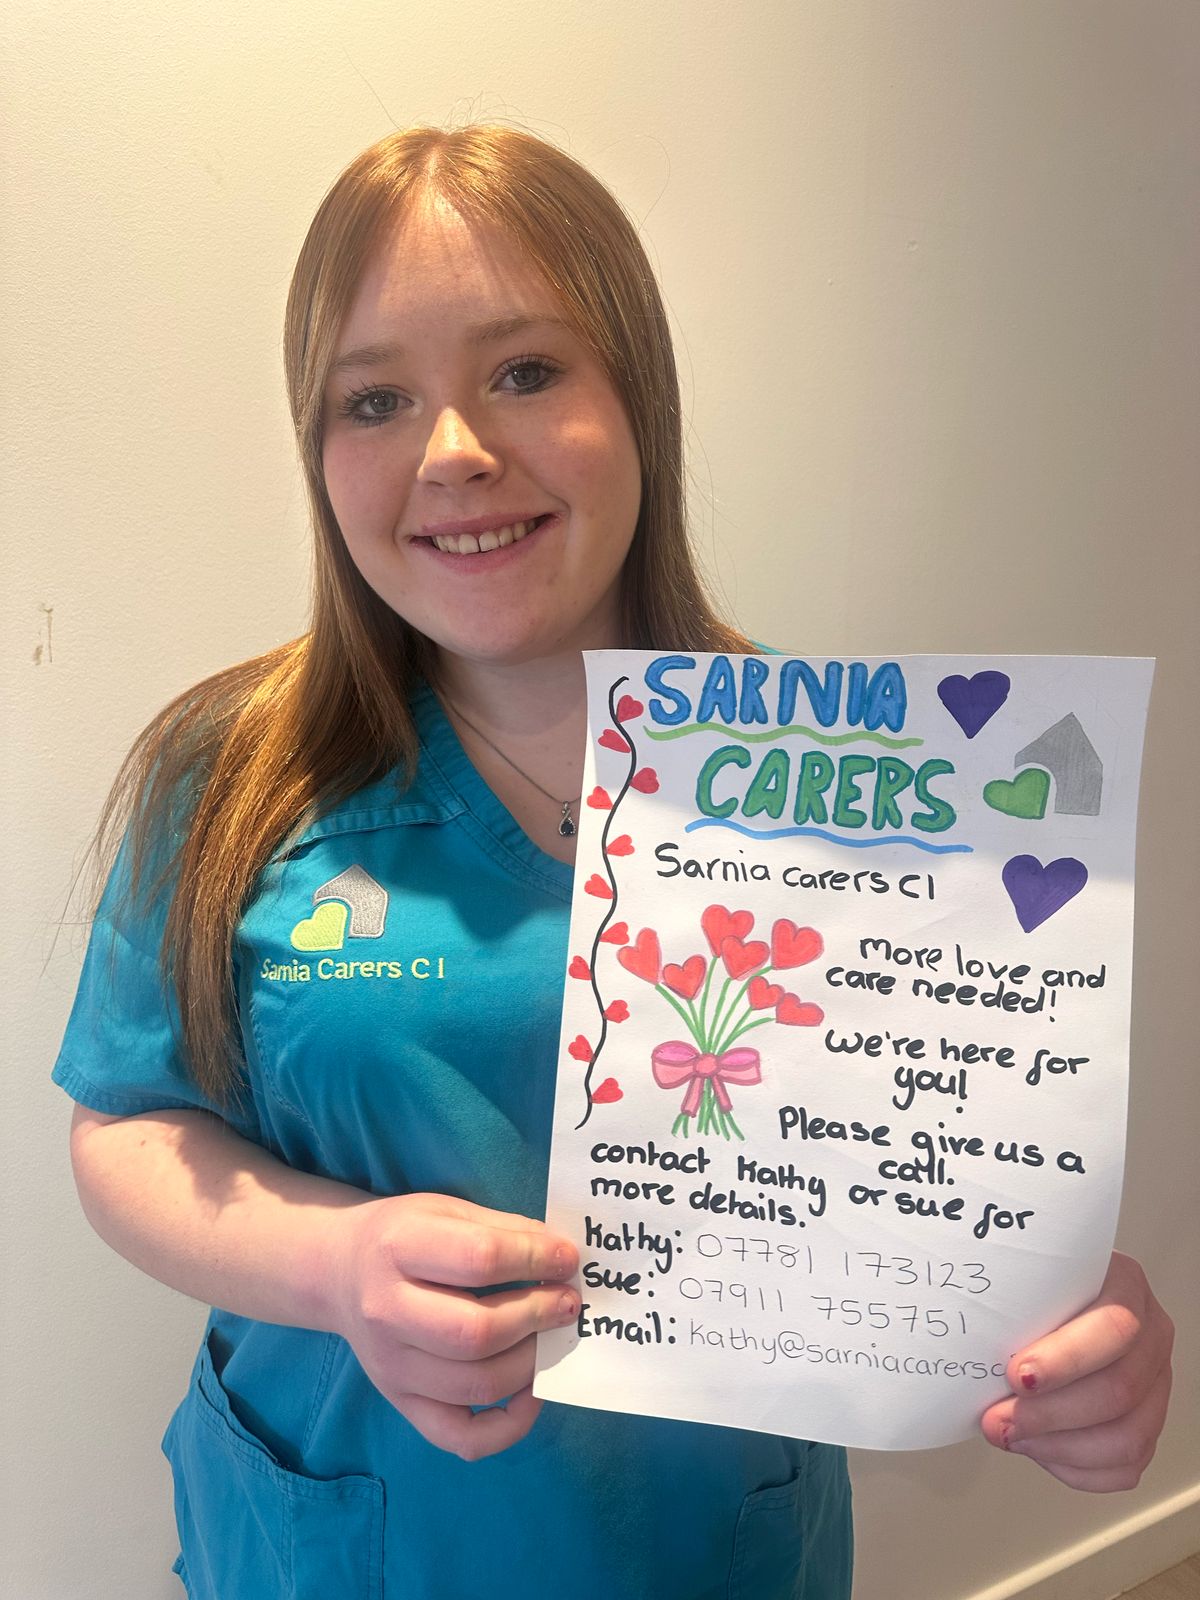 Sarnia Carers C I
SARNIA
CARERS
Sarnia Carers CI
More love and
care needed!
We're here for
you!
Please give us a
call.
contact Kathy or sue for
more details.
Kathy: 07781 173123
Sue: 07911 755751
Email: kathy@sarniacarersc